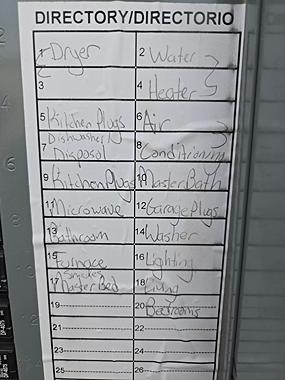 DIRECTORY/DIRECTORIO
1 Dryer 2 Water
3 4 Heater
5 Kitchen Plugs 6 Air
7 Dishwasher/ Disposol 8 Conditioning
9 Kitchen Plugs 10 Master Bath
11 Microwave 12 Garage Plugs
13 Bathroom 14 Washer
15 Furnace 16 Lighting
17 Smokes Master Bed 18 Living
19 20 Bedrooms
21 22
23 24
25 26